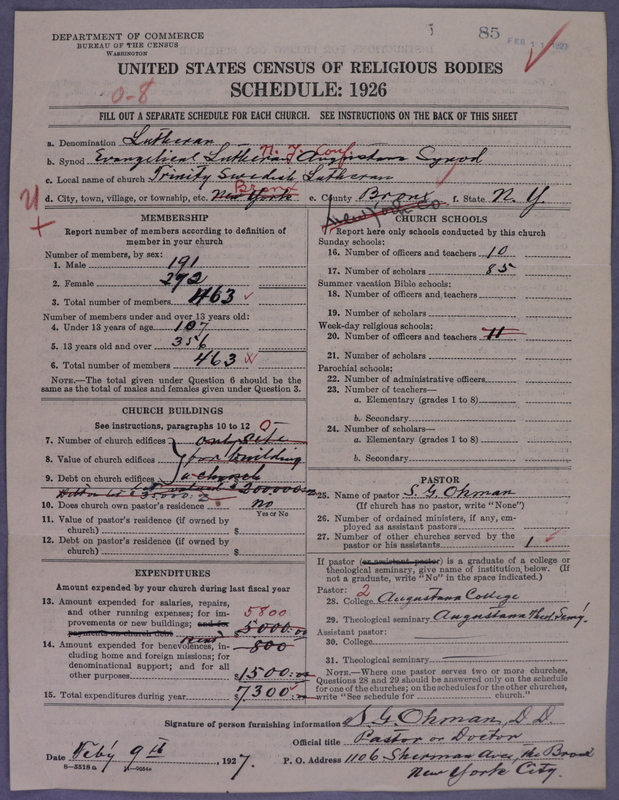 DEPARTMENT OF COMMERCE
BUREAU OF THE CENSUS
WASHINGTON
85
FEB 11 1927
UNITED STATES CENSUS OF RELIGIOUS BODIES
SCHEDULE: 1926
0-8
FILL OUT A SEPARATE SCHEDULE FOR EACH CHURCH. SEE INSTRUCTIONS ON THE BACK OF THIS SHEET
a. Denomination Lutheran
b. Synod Evangelical Lutheran Augustana Synod
N. Y. Conf.
c. Local name of church Trinity Swedish Lutheran
d. City, town, village, or township, etc. New York Bronx e. County Bronx f. State N. Y.
New York Co
MEMBERSHIP
Report number of members according to definition of
member in your church
Number of members, by sex:
1. Male 191
2. Female 272
3. Total number of members 463
Number of members under and over 13 years old:
4. Under 13 years of age 107
5. 13 years old and over 356
6. Total number of members 463
NOTE.—The total given under Question 6 should be the
same as the total of males and females given under Question 3.
CHURCH BUILDINGS
See instructions, paragraphs 10 to 12
7. Number of church edifices only site
8. Value of church edifices for building
9. Debt on church edifices a church
Debt on lot $35000:
lot valued $200,000
10. Does church own pastor's residence no
Yes or No
11. Value of pastor's residence (if owned by
church) $
12. Debt on pastor's residence (if owned by
church) $
EXPENDITURES
Amount expended by your church during last fiscal year
13. Amount expended for salaries, repairs,
and other running expenses; for im- 5800
provements or new buildings; and for
payments on church debt $5000:00
rent 800
14. Amount expended for benevolences, in-
cluding home and foreign missions; for
denominational support; and for all
other purposes $1500:00
15. Total expenditures during year $7300
CHURCH SCHOOLS
Report here only schools conducted by this church
Sunday schools:
16. Number of officers and teachers 10
17. Number of scholars 85
Summer vacation Bible schools:
18. Number of officers and teachers
19. Number of scholars
Week-day religious schools:
20. Number of officers and teachers 11
21. Number of scholars
Parochial schools:
22. Number of administrative officers
23. Number of teachers—
a. Elementary (grades 1 to 8)
b. Secondary
24. Number of scholars—
a. Elementary (grades 1 to 8)
b. Secondary
PASTOR
25. Name of pastor S. G. Ohman
(If church has no pastor, write "None")
26. Number of ordained ministers, if any, em-
ployed as assistant pastors
27. Number of other churches served by the
pastor or his assistants 1
If pastor (or assistant pastor) is a graduate of a college or
theological seminary, give name of institution below. (If
not a graduate, write "No" in the space indicated.)
Pastor: 2
28. College Augustana College
29. Theological seminary Augustana Theol. Semy.
Assistant pastor:
30. College
31. Theological seminary
NOTE.—Where one pastor serves two or more churches,
Questions 28 and 29 should be answered only on the schedule
for one of the churches; on the schedules for the other churches,
write "See schedule for church."
Signature of person furnishing information S. G. Ohman, D. D.
Official title Pastor or Doctor
Date Feb'y 9th, 1927. P. O. Address 1106 Sherman Ave, the Bronx
New York City.
8—5518a